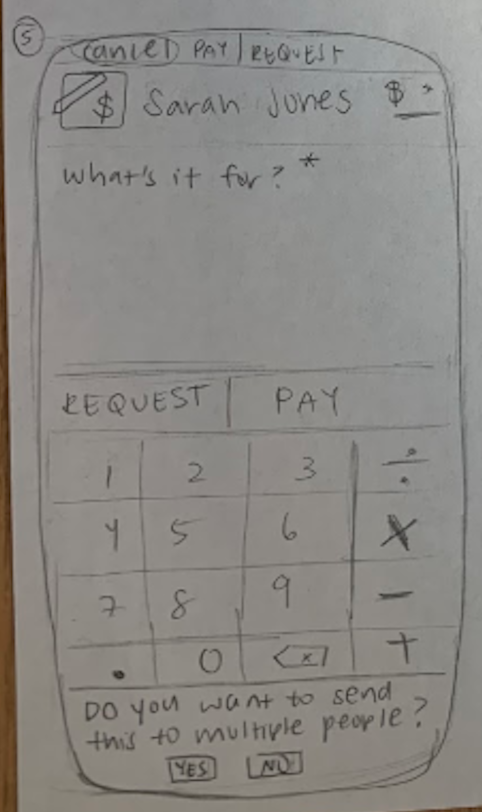 5
Cancel PAY | REQUEST
$ Sarah Jones $
What's it for? *
REQUEST | PAY
1 2 3 ÷
4 5 6 X
7 8 9 -
. 0 <x| +
Do you want to send
this to multiple people?
YES NO